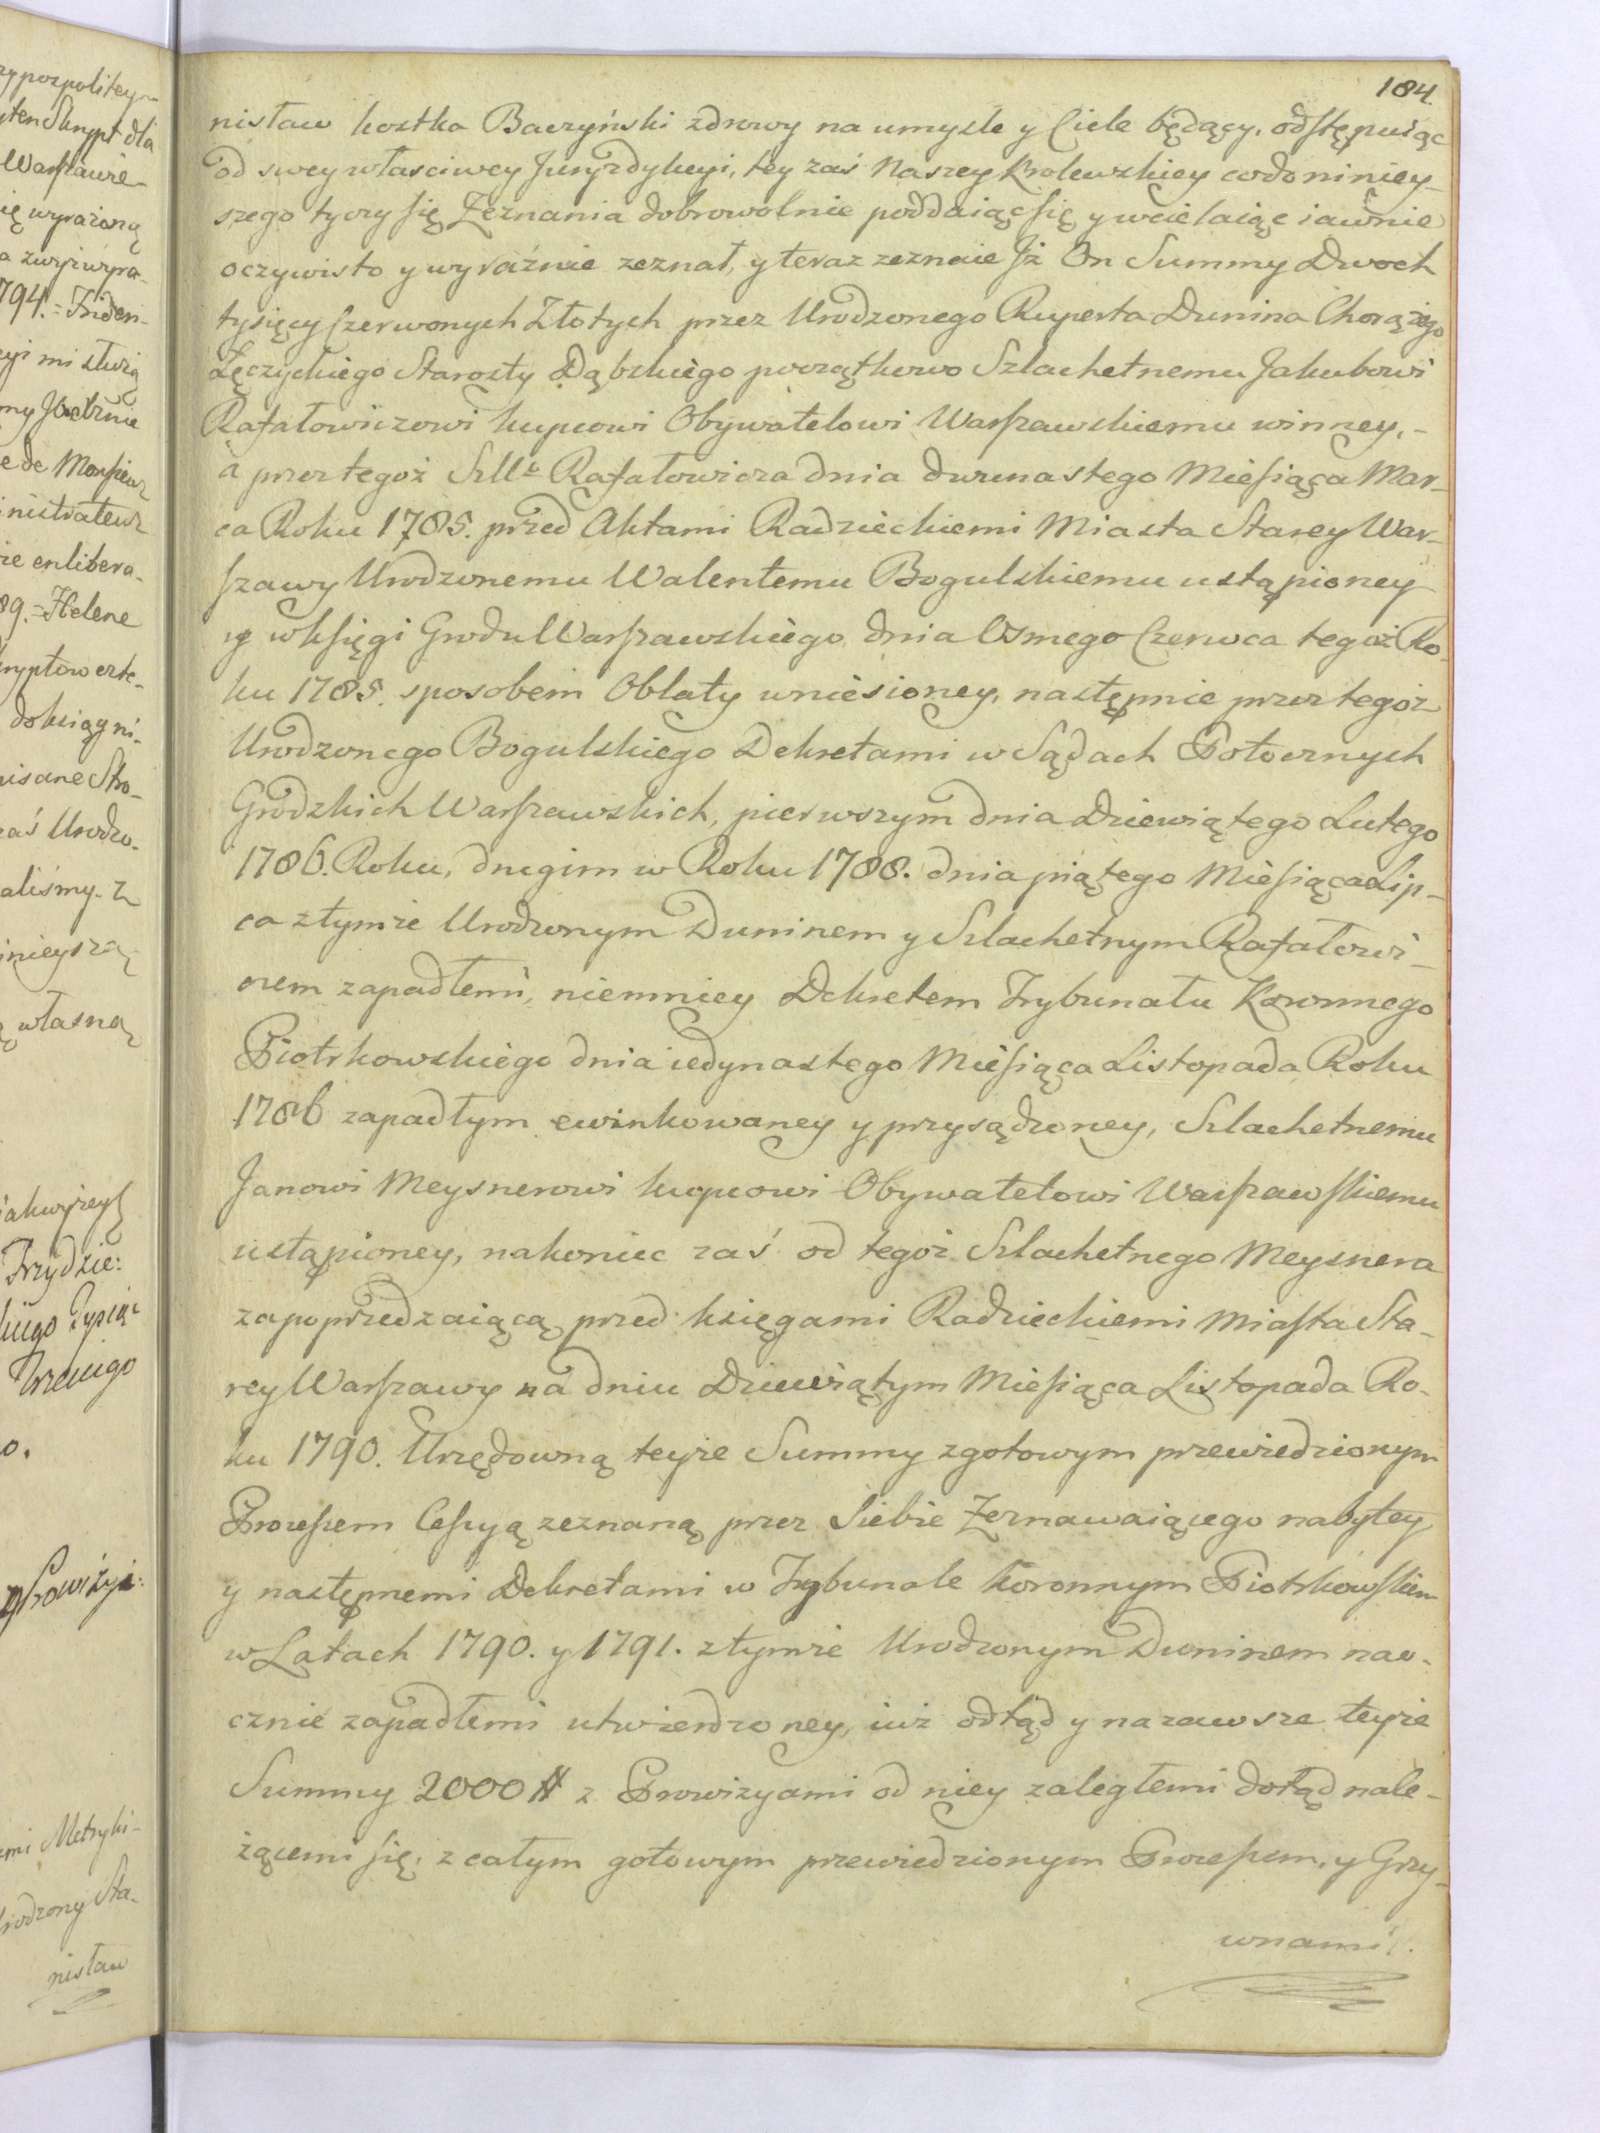 184.
nisław kostka Baczyński zdrowy na umyśle y Ciele będący, odstępuiąc
od swey własciwey Juryzdykcyi, tey zaś Naszey Krolewskiey co do niniey-
szego tyczy się Zeznania dobrowolnie poddaiąc się y wcielaiąc iawnie
oczywisto y wyraźnie zeznał, y teraz zeznaie Jż On Summy Dwoch
tysięcy Czerwonych Złotych przez Urodzonego Ruperta Dunina Chorążego
Łęczyckiego Starosty Dąbskiego początkowo Szlachetnemu Jakubowi
Rafałowiczowi kupcowi Obywatelowi Warszawskiemu winney, -
a przez tegoż Szll: Rafałowicza dnia dwunastego Miesiąca Mar-
ca Roku 1785. przed Aktami Radzieckiemi Miasta Starey War-
szawy Urodzonemu Walentemu Bogulskiemu ustąpioney
y w księgi Grodu Warszawskiego dnia Osmego Czerwca tegoż Ro-
ku 1785. sposobem Oblaty wniesioney, następnie przez tegoż
Urodzonego Bogulskiego Dekretami w Sądach Potocznych
Grodzkich Warszawskich, pierwszym dnia Dziewiątego Lutego
1786. Roku, drugim w Roku 1788. dnia piątego Miesiąca Lip-
ca z tymże Urodzonym Duninem y Szlachetnym Rafałowi-
czem zapadłemi, niemniey Dekretem Trybunału Koronnego
Piotrkowskiego dnia iedynastego Miesiąca Listopada Roku
1786 zapadłym ewinkowaney y przysądzoney, Szlachetnemu
Janowi Meysnerowi kupcowi Obywatelowi Warszawskiemu
ustąpioney, nakoniec zaś od tegoż Szlachetnego Meysnera
za poprzedzaiącą przed księgami Radzieckiemi Miasta Sta-
rey Warszawy na dniu Dziewiątym Miesiąca Listopada Ro-
ku 1790. Urzędowną teyże Summy z gotowym przewiedzionym
Processem Cessyą zeznaną przez Siebie Zeznawaiącego nabytey
y następnemi Dekretami w Trybunale Koronnym Piotrkowskim
w Latach 1790. y 1791. z tymże Urodzonym Duninem nao-
cznie zapadłemi utwierdzoney, iuż odtąd y na zawsze teyże
Summy 2000 # z Prowizyami od niey zaległemi dotąd nale-
żącemi się, z całym gotowym przewiedzionym Processem, y Grzy-
wnami